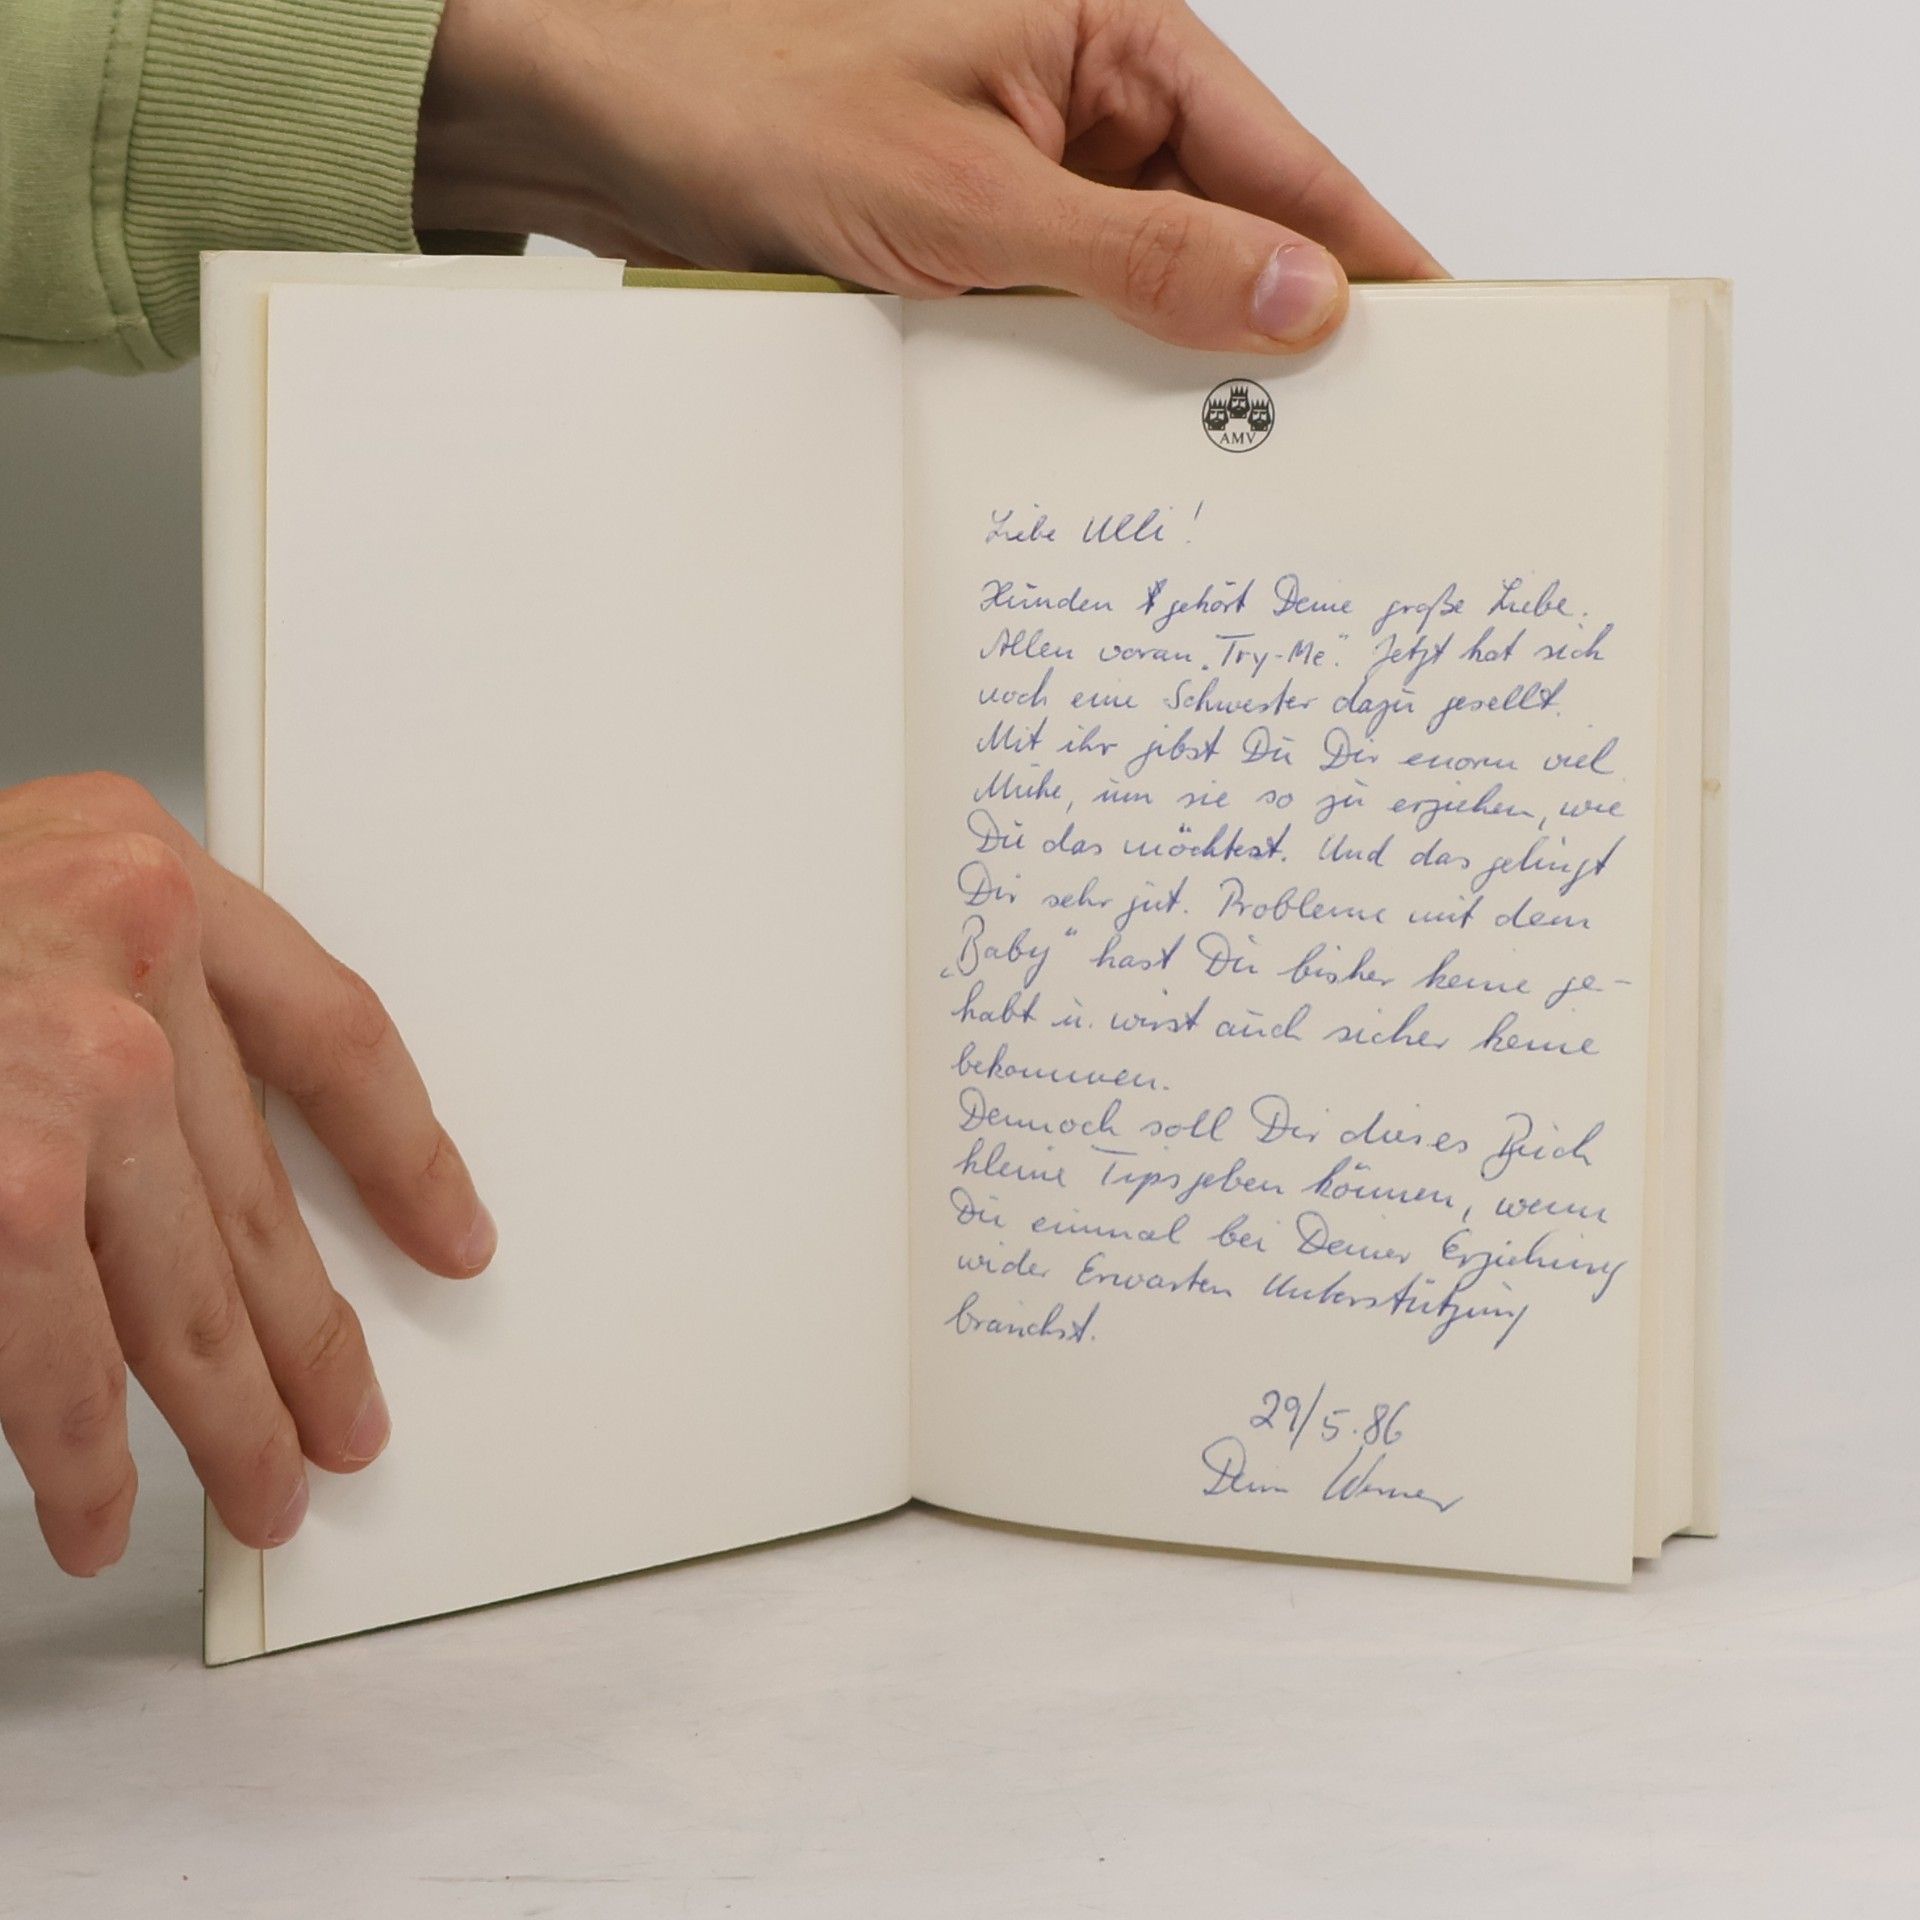 AMV
Liebe Ulli!
Hunden gehört Deine große Liebe.
Allen voran „Try-Me". Jetzt hat sich
noch eine Schwester dazu gesellt.
Mit ihr gibst Du Dir enorm viel
Mühe, um sie so zu erziehen, wie
Du das möchtest. Und das gelingt
Dir sehr gut. Probleme mit dem
„Baby" hast Du bisher keine ge-
habt u. wirst auch sicher keine
bekommen.
Dennoch soll Dir dieses Buch
kleine Tips geben können, wenn
Du einmal bei Deiner Erziehung
wider Erwarten Unterstützung
brauchst.
29/5.86
Dein Werner